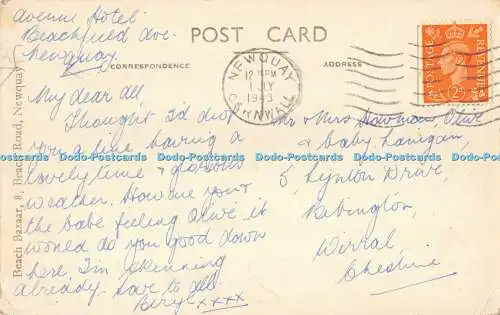 Avenue Hotel
Beachfield Ave.
Newquay.
POST CARD
CORRESPONDENCE
ADDRESS
NEWQUAY
12 PM
1 JLY
CORNWALL
POSTAGE
REVENUE
2D
My dear all,
Thought I'd drop
you a line having a
lovely time & glorious
weather. How are you &
the babe feeling Olive it
would do you good down
here, I'm skinning
already. Love to all.
Beryl xxxx
Mr & Mrs Howman Olive
& baby Lanigan,
5, Lynton Drive,
Bebington,
Wirral,
Cheshire
Beach Bazaar, 8, Beach Road, Newquay
Dodo-Postcards Dodo-Postcards Dodo-Postcards Dodo-Postcards Dodo-Postcards Dodo-Postcards